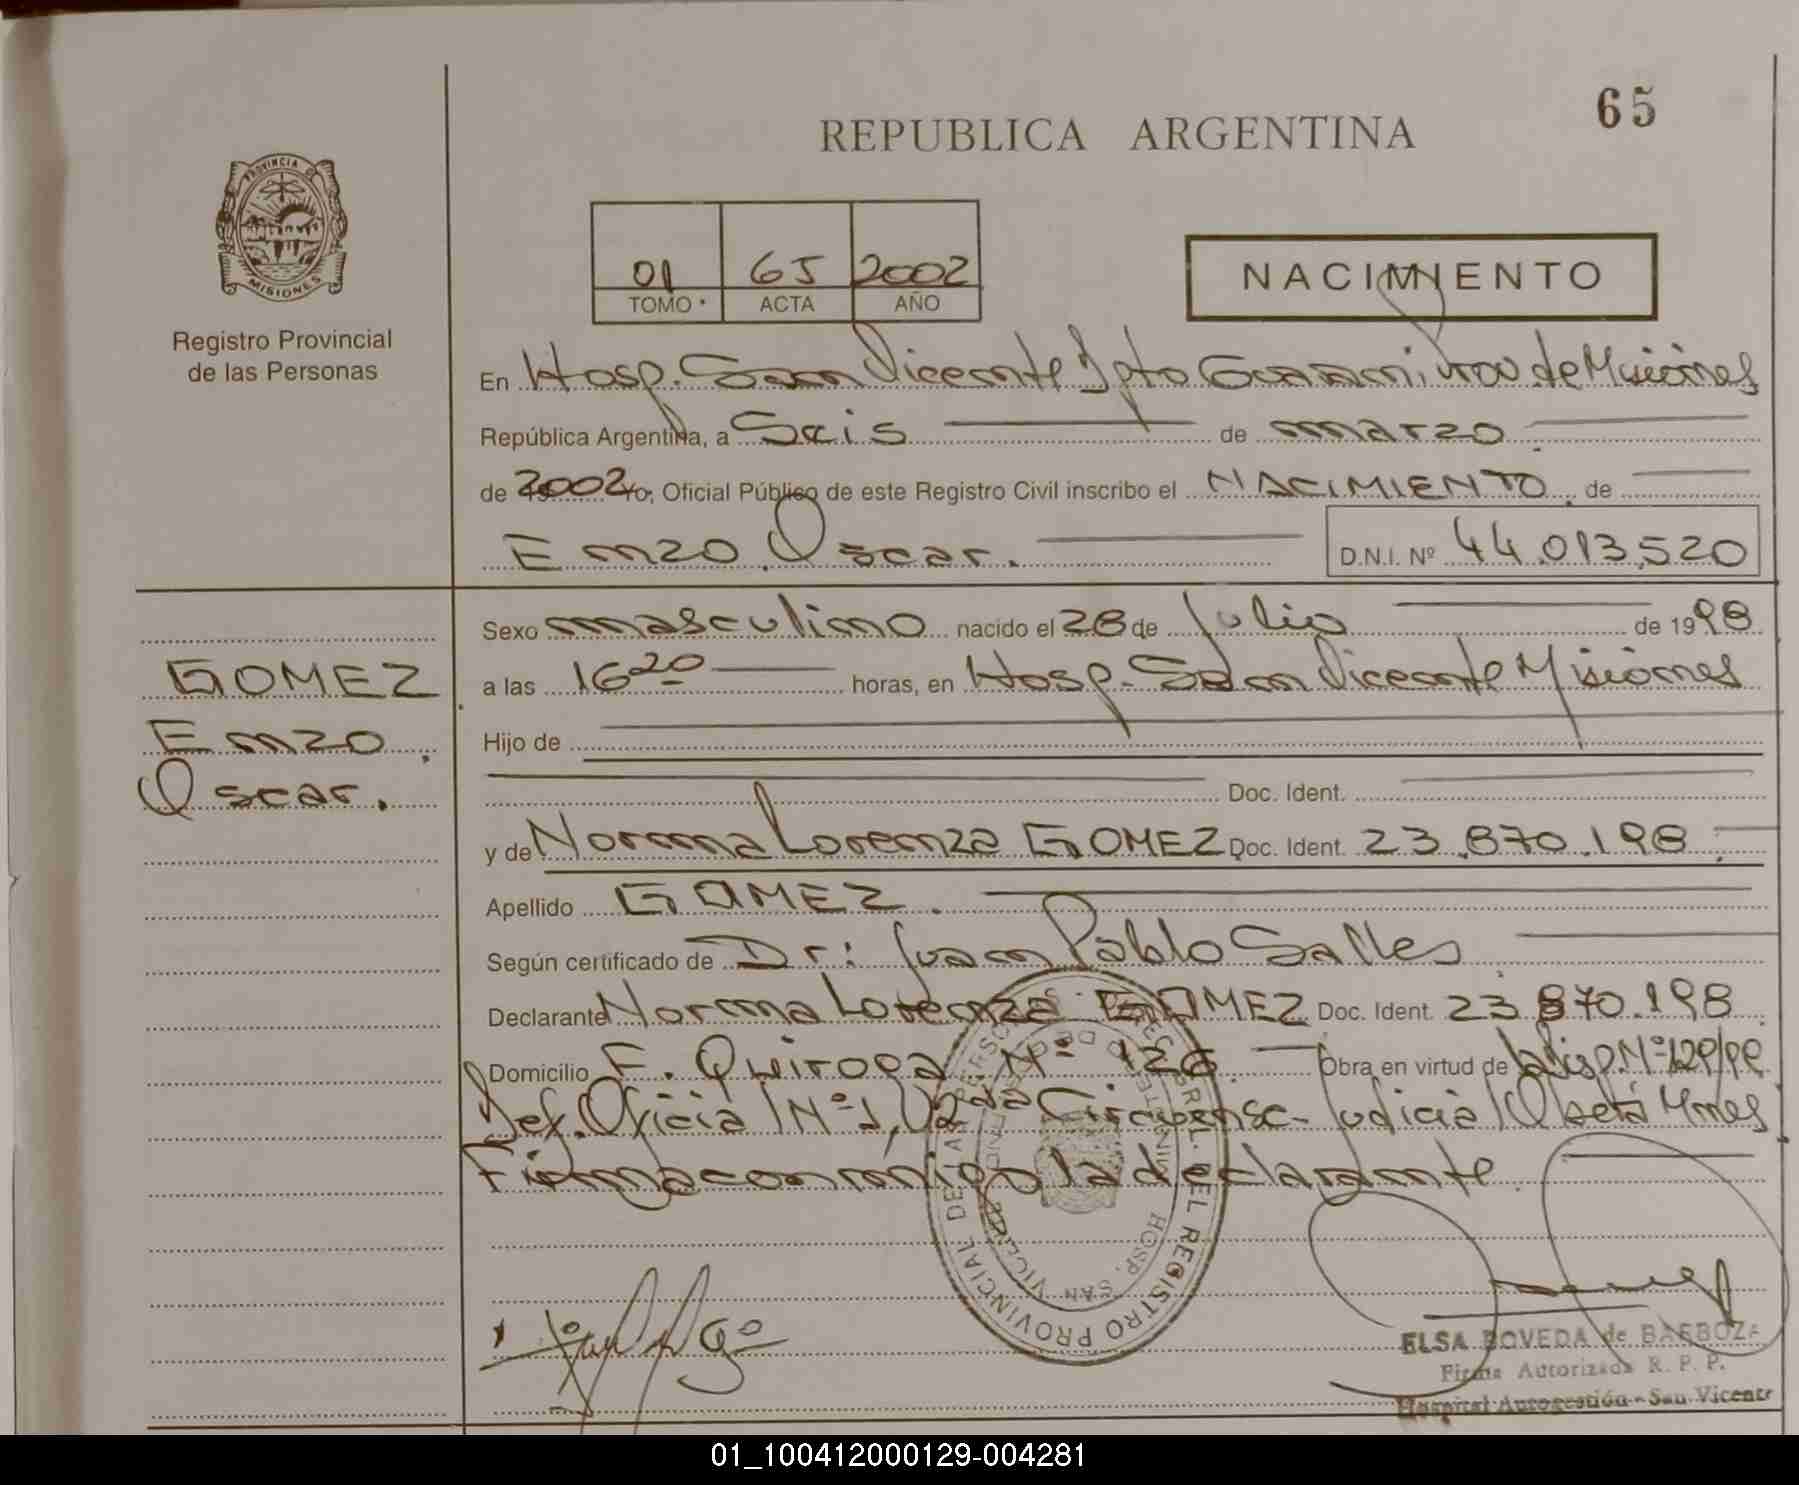 65
REPUBLICA ARGENTINA
PROVINCIA DE
MISIONES
Registro Provincial
de las Personas
01 65 2002
TOMO ACTA AÑO
NACIMIENTO
En Hosp. San Vicente Dpto Guarani, Prov. de Misiones
República Argentina, a Seis de marzo
de 2002 yo, Oficial Público de este Registro Civil inscribo el NACIMIENTO de
Enzo Oscar.
D.N.I. Nº 44.013.520
GOMEZ
Enzo
Oscar.
Sexo masculino nacido el 28 de Julio de 1998
a las 16 20 horas, en Hosp. San Vicente Misiones
Hijo de
Doc. Ident.
y de Norma Lorenza GOMEZ Doc. Ident. 23.870.198
Apellido GOMEZ.
Según certificado de Dr: Juan Pablo Salles
Declarante Norma Lorenza GOMEZ Doc. Ident. 23.870.198
Domicilio F. Quiroga Nº 126. Obra en virtud de Disp. Nº
Def. Oficial Nº 1, 2da Circunsc. Judicial Oberá Mnes
Firma conmigo la declarante.
REGISTRO PROVINCIAL DE
HOSP. SAN VICENTE
ELSA BOVEDA de BARBOZA
Firma Autorizada R. P. P.
Hospital Autogestión - San Vicente
01_100412000129-004281